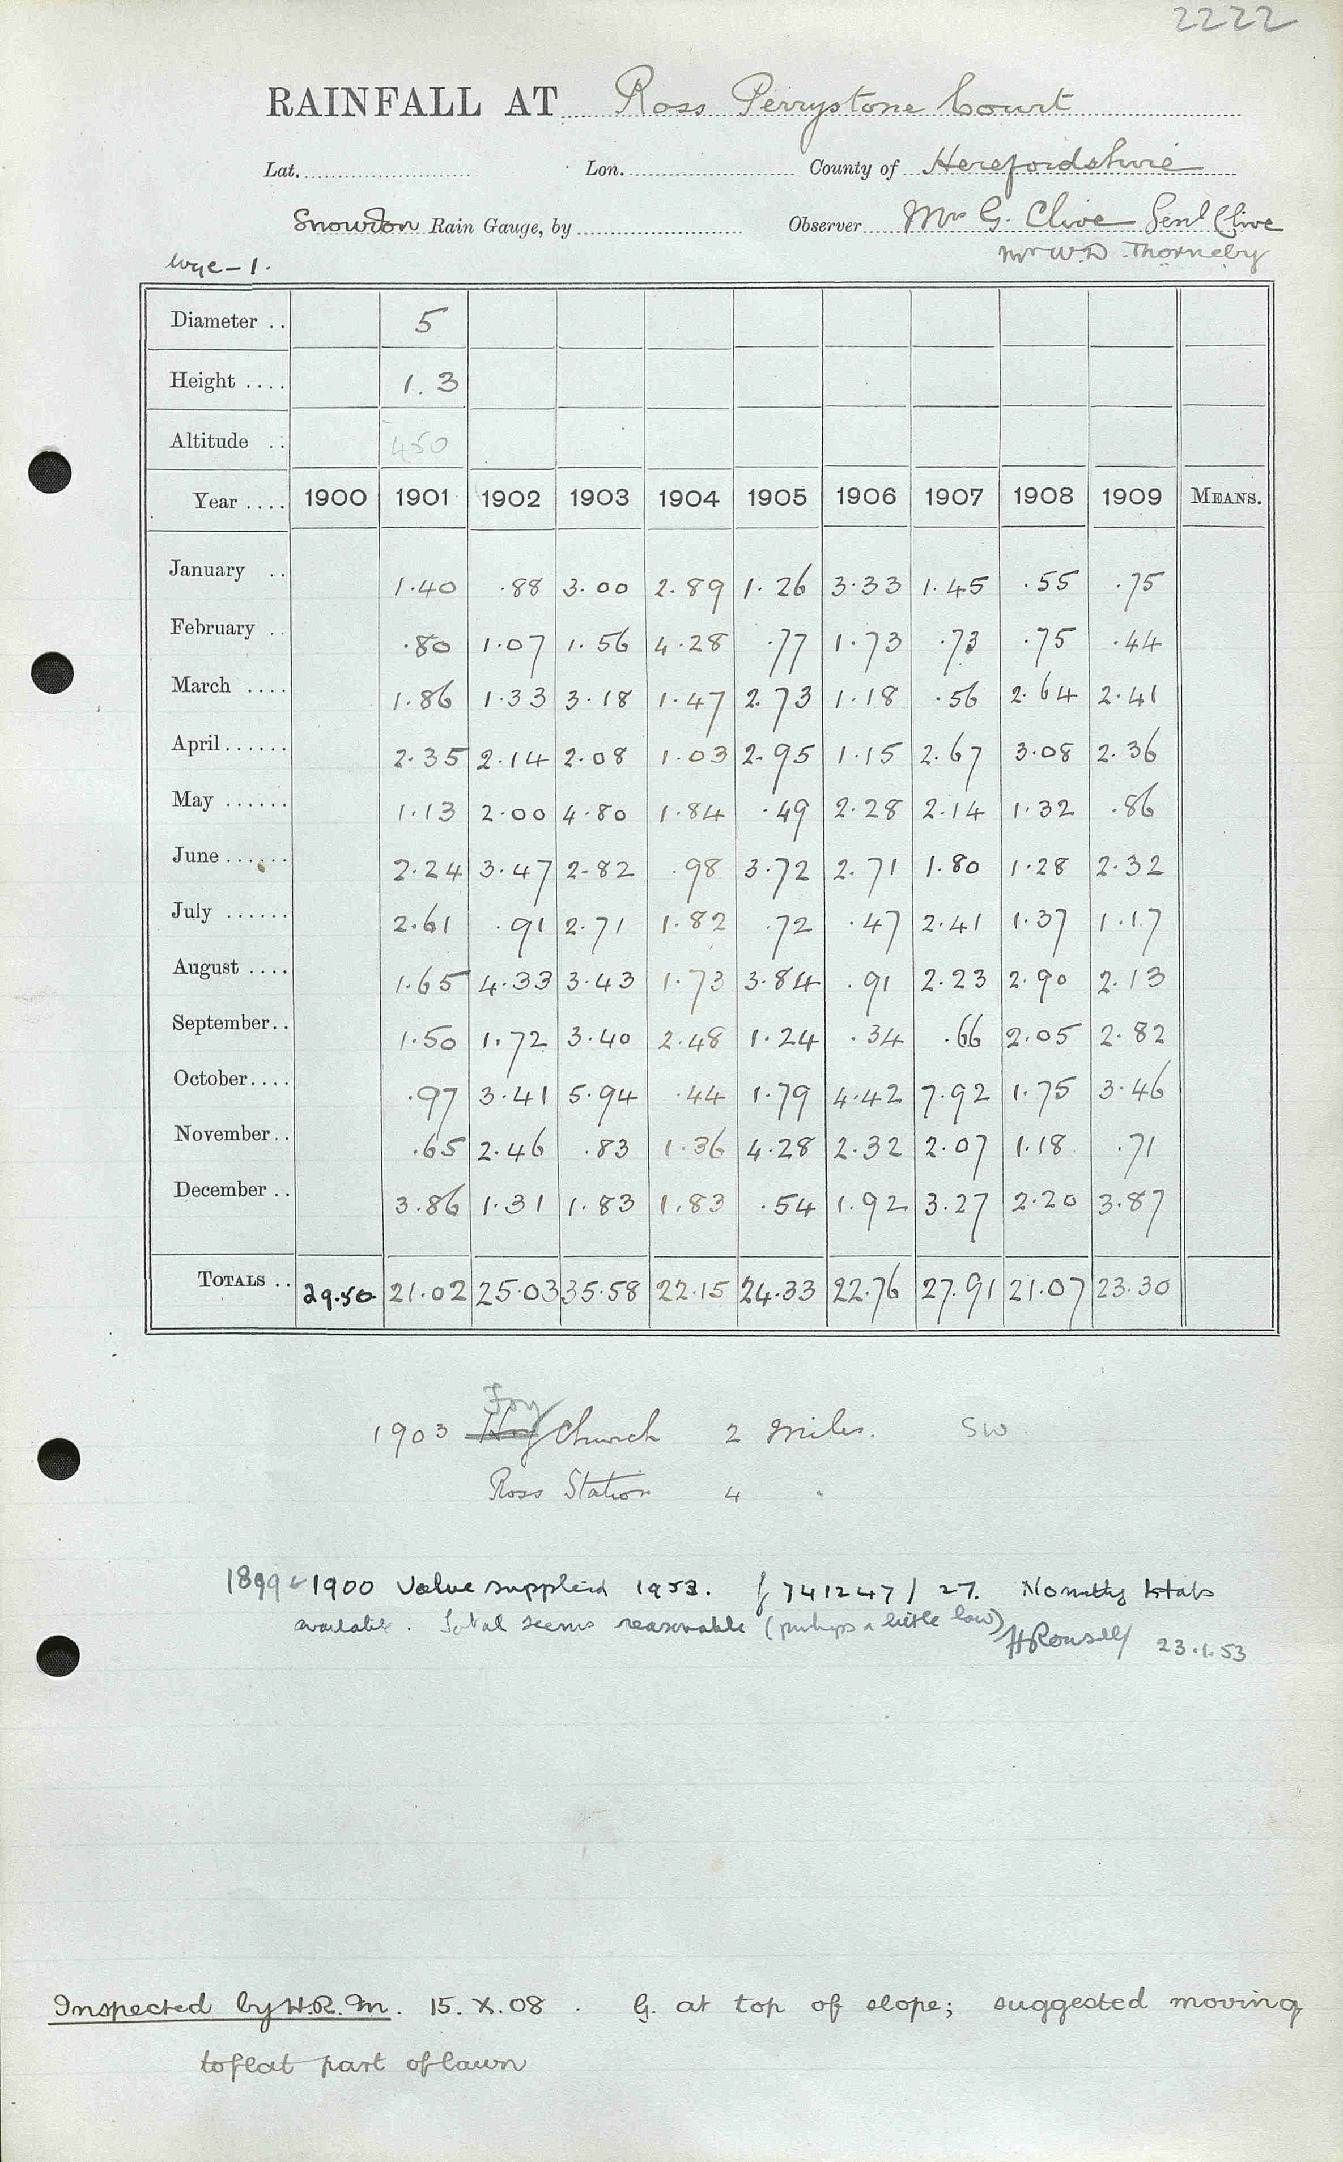 2222
RAINFALL AT Ross Perrystone Court
Lat. Lon. County of Herefordshire
Snowdon Rain Gauge, by Observer Mrs G. Clive Genl Clive
Mr W.D. Thorneby
Wye-1.
Diameter .. 5
Height .... 1.3
Altitude .. 450
Year .... 1900 1901 1902 1903 1904 1905 1906 1907 1908 1909 MEANS.
January .. 1.40 .88 3.00 2.89 1.26 3.33 1.45 .55 .75
February .. .80 1.07 1.56 4.28 .77 1.73 .73 .75 .44
March .... 1.86 1.33 3.18 1.47 2.73 1.18 .56 2.64 2.41
April...... 2.35 2.14 2.08 1.03 2.95 1.15 2.67 3.08 2.36
May ...... 1.13 2.00 4.80 1.84 .49 2.28 2.14 1.32 .86
June ...... 2.24 3.47 2.82 .98 3.72 2.71 1.80 1.28 2.32
July ...... 2.61 .91 2.71 1.82 .72 .47 2.41 1.37 1.17
August .... 1.65 4.33 3.43 1.73 3.84 .91 2.23 2.90 2.13
September.. 1.50 1.72 3.40 2.48 1.24 .34 .66 2.05 2.82
October.... .97 3.41 5.94 .44 1.79 4.42 7.92 1.75 3.46
November.. .65 2.46 .83 1.36 4.28 2.32 2.07 1.18 .71
December .. 3.86 1.31 1.83 1.83 .54 1.92 3.27 2.20 3.87
TOTALS .. 29.50 21.02 25.03 35.58 22.15 24.33 22.76 27.91 21.07 23.30
Foy
1903 Church 2 miles. SW
Ross Station 4 "
1899 & 1900 Value supplied 1953. f 741247/27. No mthly totals
available. Total seems reasonable (perhaps a little low)
23.1.53
Inspected by H.R.M. 15.X.08. G. at top of slope; suggested moving
to flat part of lawn